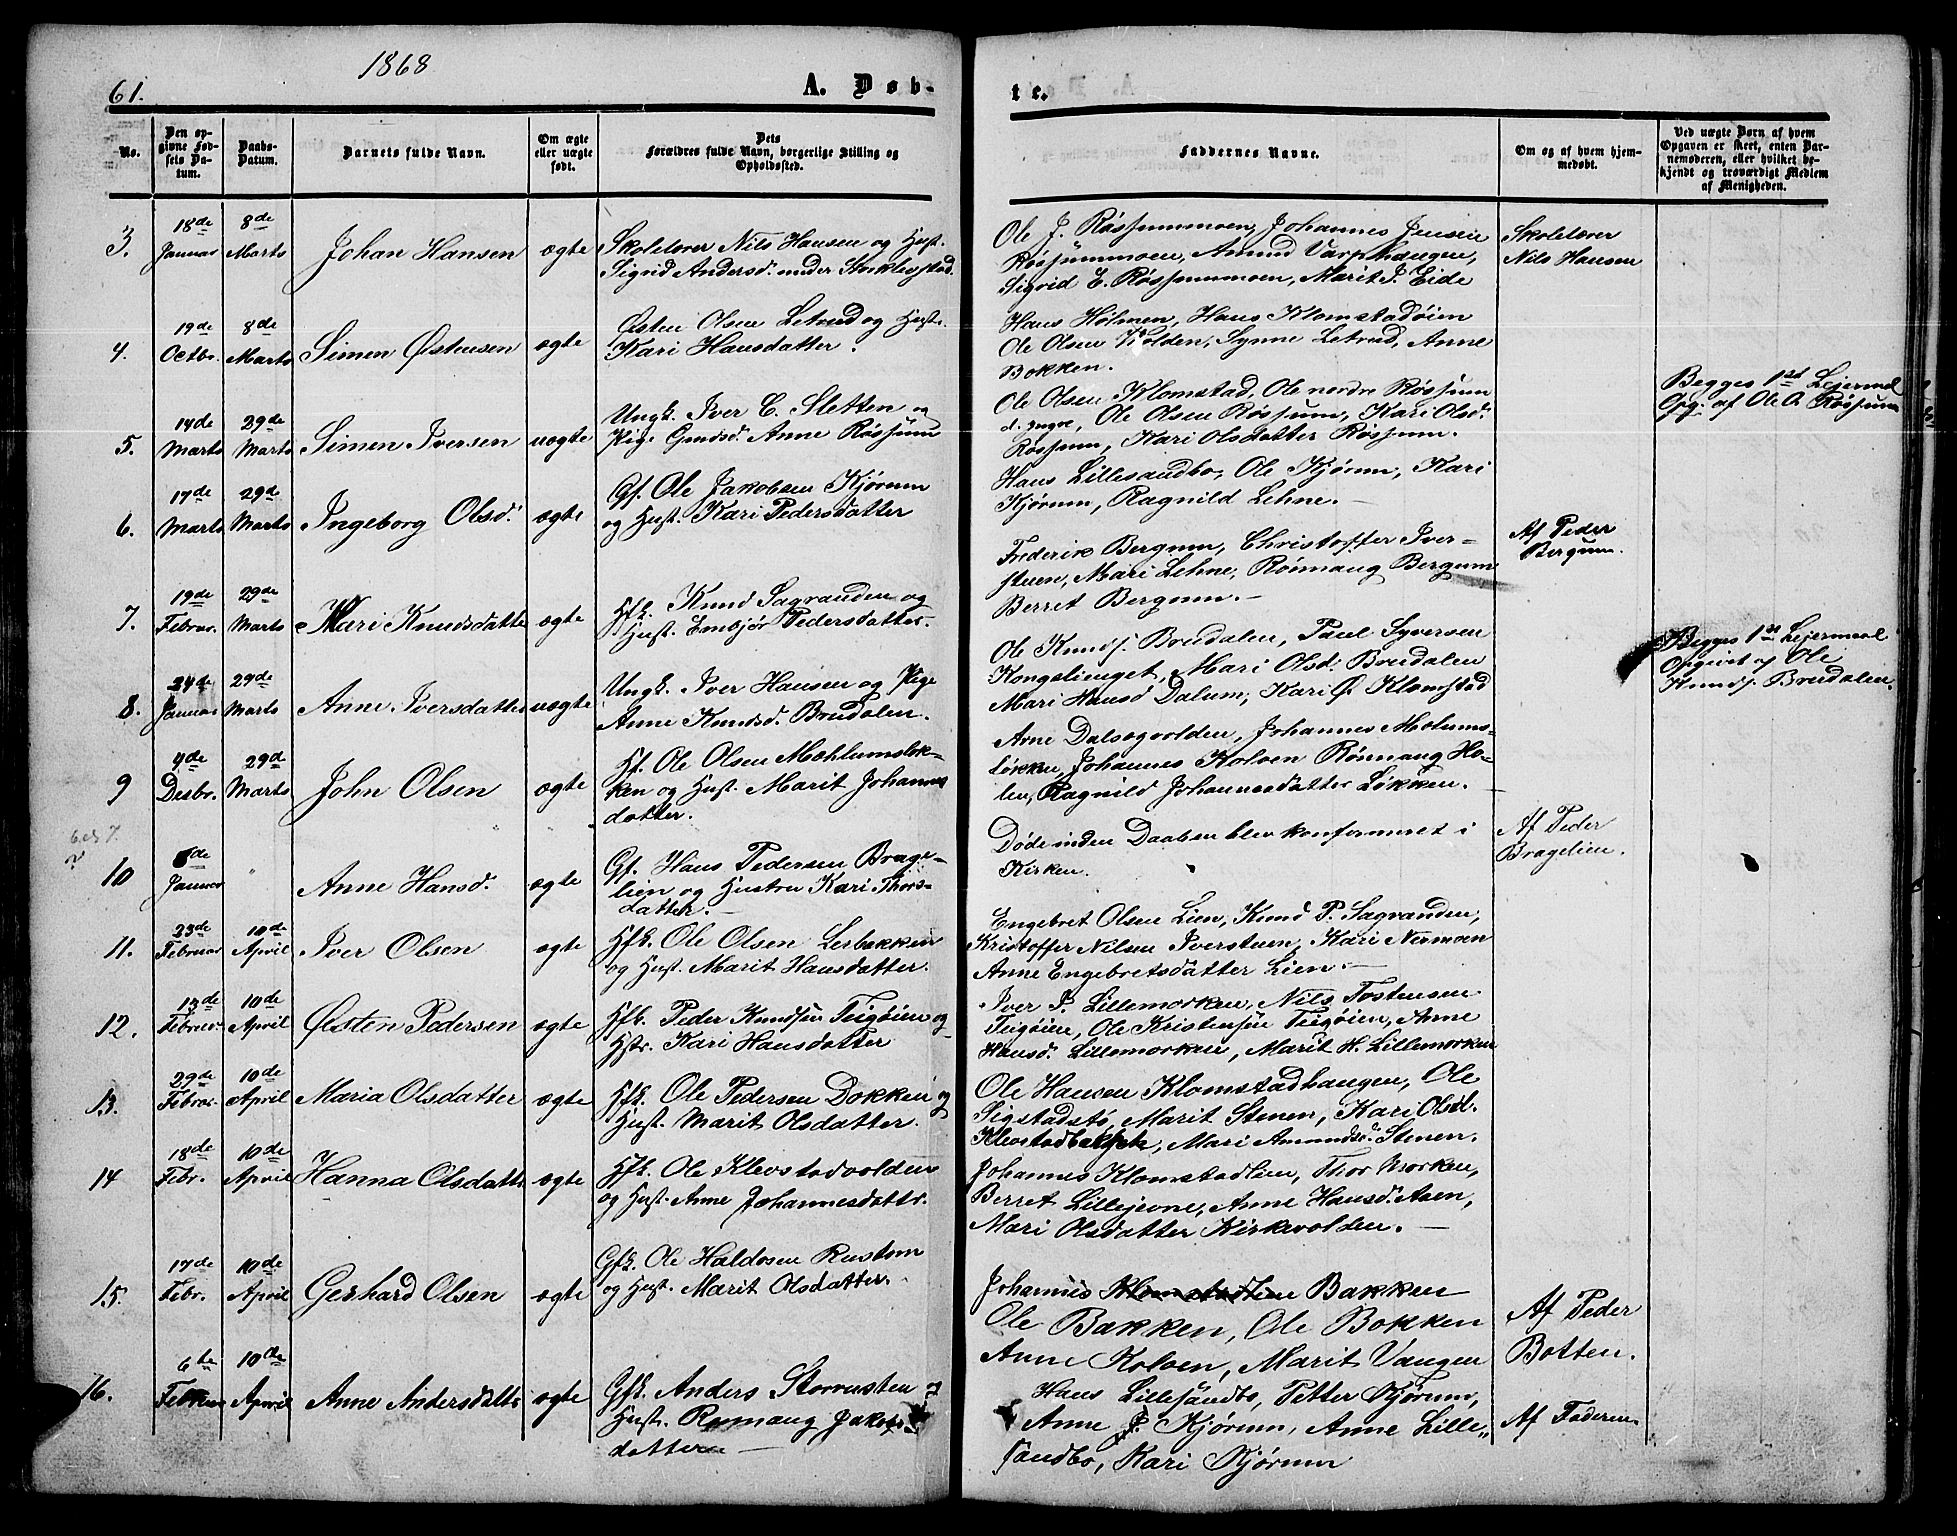 61.
1868
A. Døb-
te.
No.
Den op-
givne Fød-
sels Da-
tum.
Daabs-
Datum.
Barnets fulde Navn.
Om ægte
eller uægte
født.
Dets
Forældres fulde Navn, borgerlige Stilling og
Opholdssted.
Faddernes Navne.
Om og af hvem hjem-
medøbt.
Ved uægte Børn af hvem
Opgaven er skeet, enten Bar-
nemoderen, eller hvilket be-
kjendt og troværdigt Medlem
af Menigheden.
3.
18de
Januar
8de
Marts
Johan Hansen
ægte
Skolelærer Nils Hansen og Hust.
Sigrid Andersd. under
Ole J. Røssummoen, Johannes Jensen
Røssummoen, Amund Varphaugen,
Sigrid E. Røssummoen, Marit J. Eide
Skolelærer
Nils Hansen
4.
19de
Octbr.
8de
Marts
Simen Østensen
ægte
Østen Olsen Letrud og Hust.
Kari Hansdatter.
Hans Holmen, Hans Klomstadøien
Ole Olsen Kolden, Synne Letrud, Anne
Bakken.
5.
14de
Marts
29de
Marts
Simen Iversen
uægte
Ungk. Iver C. Sletten og
Pige Gundsd. Anne Røssum
Ole Olsen Klomstad, Ole nordre Røssum
d. yngre, Ole Olsen Røssum, Kari Olsd.
Røssum, Kari Olsdatter Røssum.
Begges 1ste Lejermaal
Opg. af Ole O. Røssum
6.
17de
Marts
29de
Marts
Ingeborg Olsd.
ægte
Gf. Ole Jakobsen Kjørum
og Hust. Kari Pedersdatter
Hans Lillesandbo, Ole Kjørum, Kari
Kjørum, Ragnild Lehne.
7.
19de
Februar.
29de
Marts
Mari Knudsdatter
ægte
Hfk. Knud Sagranden og
Hust. Embjør Pedersdatter.
Frederik Bergum, Christoffer Iver-
stuen, Mari Lehne, Rønnaug Bergum
Berret Bergum.
Af Peder
Bergum.
8.
24de
Januar
29de
Marts
Anne Iversdatter
uægte
Ungk. Iver Hansen og Pige
Anne Knudsd. Brudalen.
Ole Knuds. Brudalen, Paul Syversen
Kongslienget, Mari Olsd. Brudalen
Mari Hansd Dalum, Kari Ø. Klomstad
Begges 1ste Lejermaal
Opgivet af Ole
Knuds. Brudalen.
9
4de
Desbr.
29de
Marts
John Olsen
ægte
Hf. Ole Olsen Mæhlumsløk-
ken og Hust. Marit Johannes
datter.
Arne Dalsegvolden, Johannes Melums-
løkken, Johannes Kolven Rønnaug Ho-
len, Ragnild Johannesdatter Løkken.
6 eds 7.
10
de
Januar
"
Anne Hansd.
ægte
Gf. Hans Pedersen Brage-
lien og Hustru Kari Thors-
datter.
Døde inden Daaben blev konfirmeret i
Kirken.
Af Peder
Bragelien.
11.
23de
Februar
10de
April
Iver Olsen
ægte
Hfk. Ole Olsen Lerbakken
og Hust. Marit Hansdatter.
Engebret Olsen Lien, Knud P. Sagranden,
Kristoffer Nilsen Iverstuen, Kari Nermoen
Anne Engebretsdatter Lien.
12.
13de
Februar
10de
April
Østen Pedersen
ægte
Hfk. Peder Knudsen Teigøien og
Hstr. Kari Hansdatter
Iver P. Lillemorken, Nils Tostensen
Teigøien, Ole Kristensen Teigøien, Anne
Hansd. Lillemorken, Marit H. Lillemorken
13.
29de
Febrar.
10de
April
Maria Olsdatter
ægte
Hfk. Ole Pedersen Dokken og
Hust. Marit Olsdatter.
Ole Hansen Klomstadhaugen, Ole
Sigstadstø, Marit Stenen, Kari Olsd.
Klevstadbakken, Mari Amundsd. Stenen.
14
18de
Febr.
10de
April
Hanna Olsdatter
ægte
Hfk. Ole Klevstadvolden
og Hust. Anne Johannesdattr.
Johannes Klomstadlien, Thor Morken,
Berret Lillejevne, Anne Hansd. Aaen,
Mari Olsdatter Kirkevolden.
15.
17de
Febr.
10de
April
Gerhard Olsen
ægte
Gfk. Ole Haldosen Rustom
og Hust. Marit Olsdatter.
Johannes Klomstadlien Bakken
Ole Bakken, Ole Bakken
Anne Kolven, Marit Vangen
Af Peder
Botten.
16.
6te
Februar
10de
April
Anne Andersdattr
ægte
Gfk. Anders Storrusten og
Hust. Rønnaug Jakobs
datter
Hans Lillesandbo, Petter Kjørum,
Anne J. Kjørum, Anne Lille-
sandbo, Kari Kjørum
Af Faderen